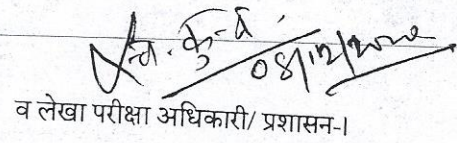 08/12/2020
व लेखा परीक्षा अधिकारी/ प्रशासन-I